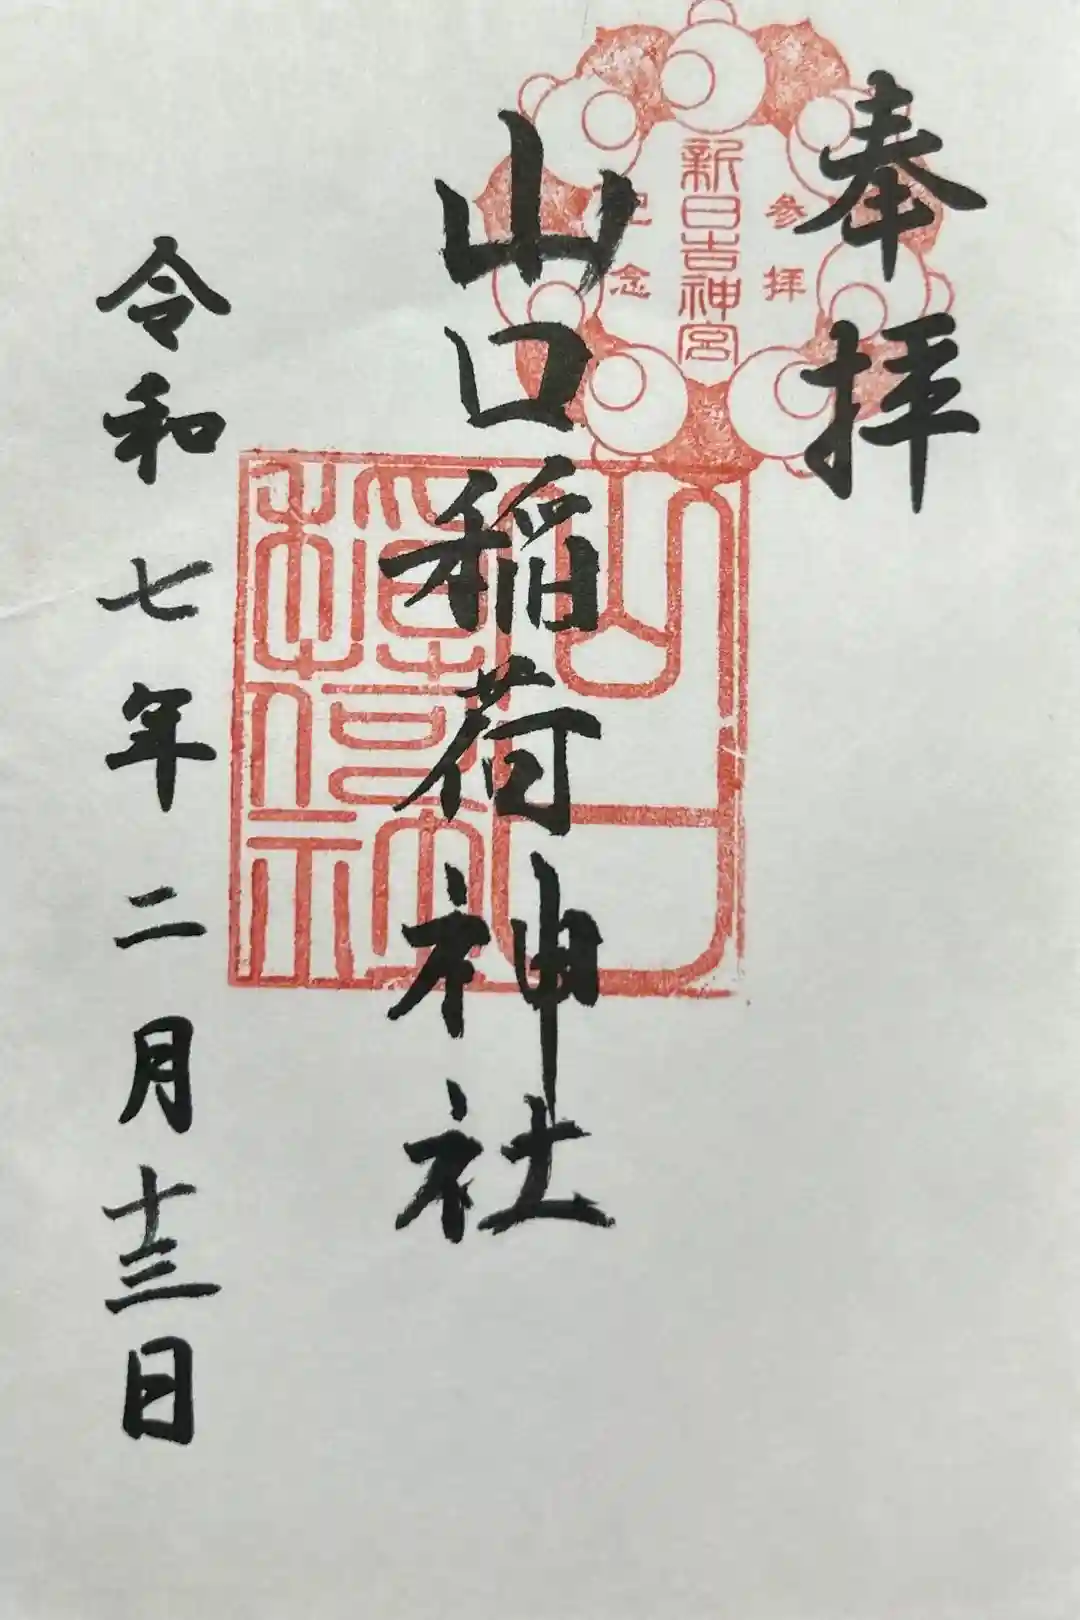 奉拝
参拝
新日吉神宮
記念
山口稲荷神社
山口
稲荷神社
令和七年二月十三日